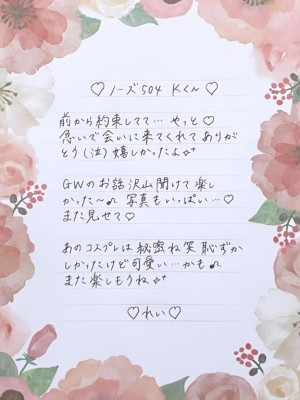 ♡ノーズ504 Kくん♡
前から約束してて… やっと♡
急いで会いに来てくれてありが
とう(泣)嬉しかったよ✧⁺
GWのお話沢山聞けて楽し
かった〜♪ 写真もいっぱい…♡
また見せて♡
あのコスプレは秘密ね笑 恥ずか
しかったけど可愛い…かも♪
また楽しもうね✧⁺
♡れい♡